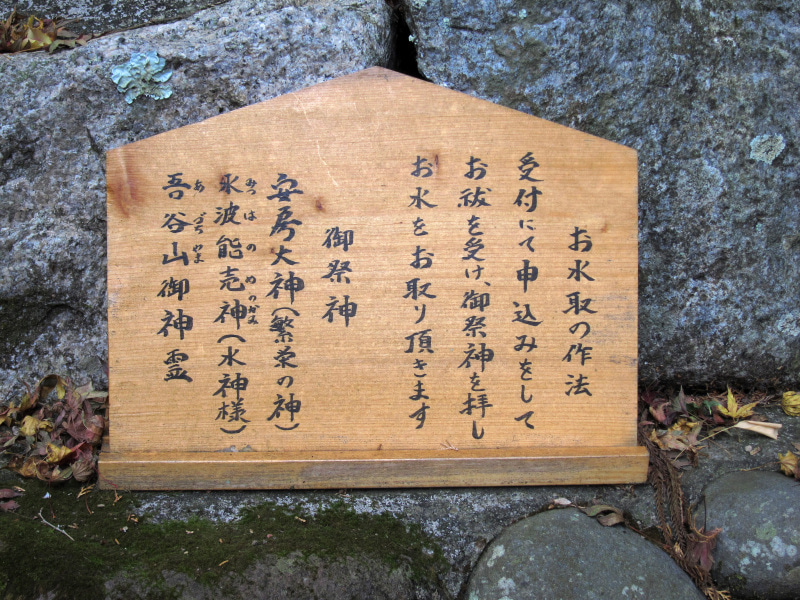 お水取の作法
受付にて申込みをして
お祓を受け、御祭神を拝し
お水をお取り頂きます
御祭神
安房大神(繁栄の神)
みつはのめのかみ
水波能売神(水神様)
あづちやま
吾谷山御神霊